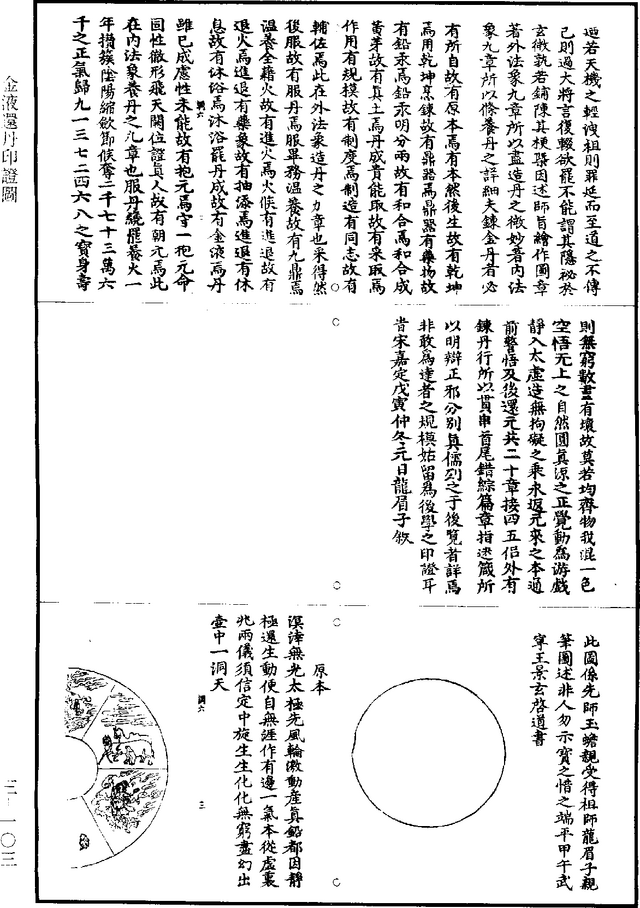 金液還丹印證圖
三一一〇三
逆若天機之輕洩祖則罪延而至道之不傳
己則過大將言復輟欲罷不能謂其隱祕於
玄微孰若鋪陳其梗槩因述師旨繪作圖章
著外法象九章所以盡造丹之微妙著內法
象九章所以條養丹之詳細夫鍊金丹者必
有所自故有原本焉有本然後生故有乾坤
焉用乾坤烹鍊故有鼎器焉鼎器有藥物故
有鉛汞焉鉛汞明分兩故有和合焉和合成
黃芽故有真土焉丹成貴能取故有采取焉
作用有規模故有制度焉制造有同志故有
輔佐焉此在外法象造丹之九章也采得然
後服故有服丹焉服畢務溫養故有九鼎焉
溫養全藉火故有進火焉火候有進退故有
退火焉進退有藥象故有抽添焉進退有休
息故有沐浴焉沐浴罷丹成故有金液焉丹
雖已成慮性未能故有抱元焉守一抱元命
固性徹形飛天闕位證真人故有朝元焉此
在內法象養丹之九章也服丹纔罷養火一
年攅簇陰陽縮歛節候奪二千七十三萬六
千之正氣歸九一三七二四六八之寶身壽
調六
則無窮數盡有壞故莫若均齊物我混一色
空悟无上之自然圓真源之正覺動為游戲
靜入太虛造無拘礙之乘永返元來之本通
前警悟及後還元共二十章接四五侶外有
鍊丹行所以貫串首尾錯綜篇章指迷箴所
以明辯正邪分別真儒列之于後覽者詳焉
非敢為達者之規模姑留為後學之印證耳
旹宋嘉定戊寅仲冬元日龍眉子敘
此圖係先師玉蟾親受得祖師龍眉子親
筆圖述非人勿示寶之惜之端平甲午武
寧王景玄啓道書
原本
溟涬無光太極先風輪激動產真鉛都因靜
極還生動便自無涯作有邊一氣本從虛裏
兆兩儀須信定中旋生生化化無窮盡幻出
壺中一洞天
調六
三